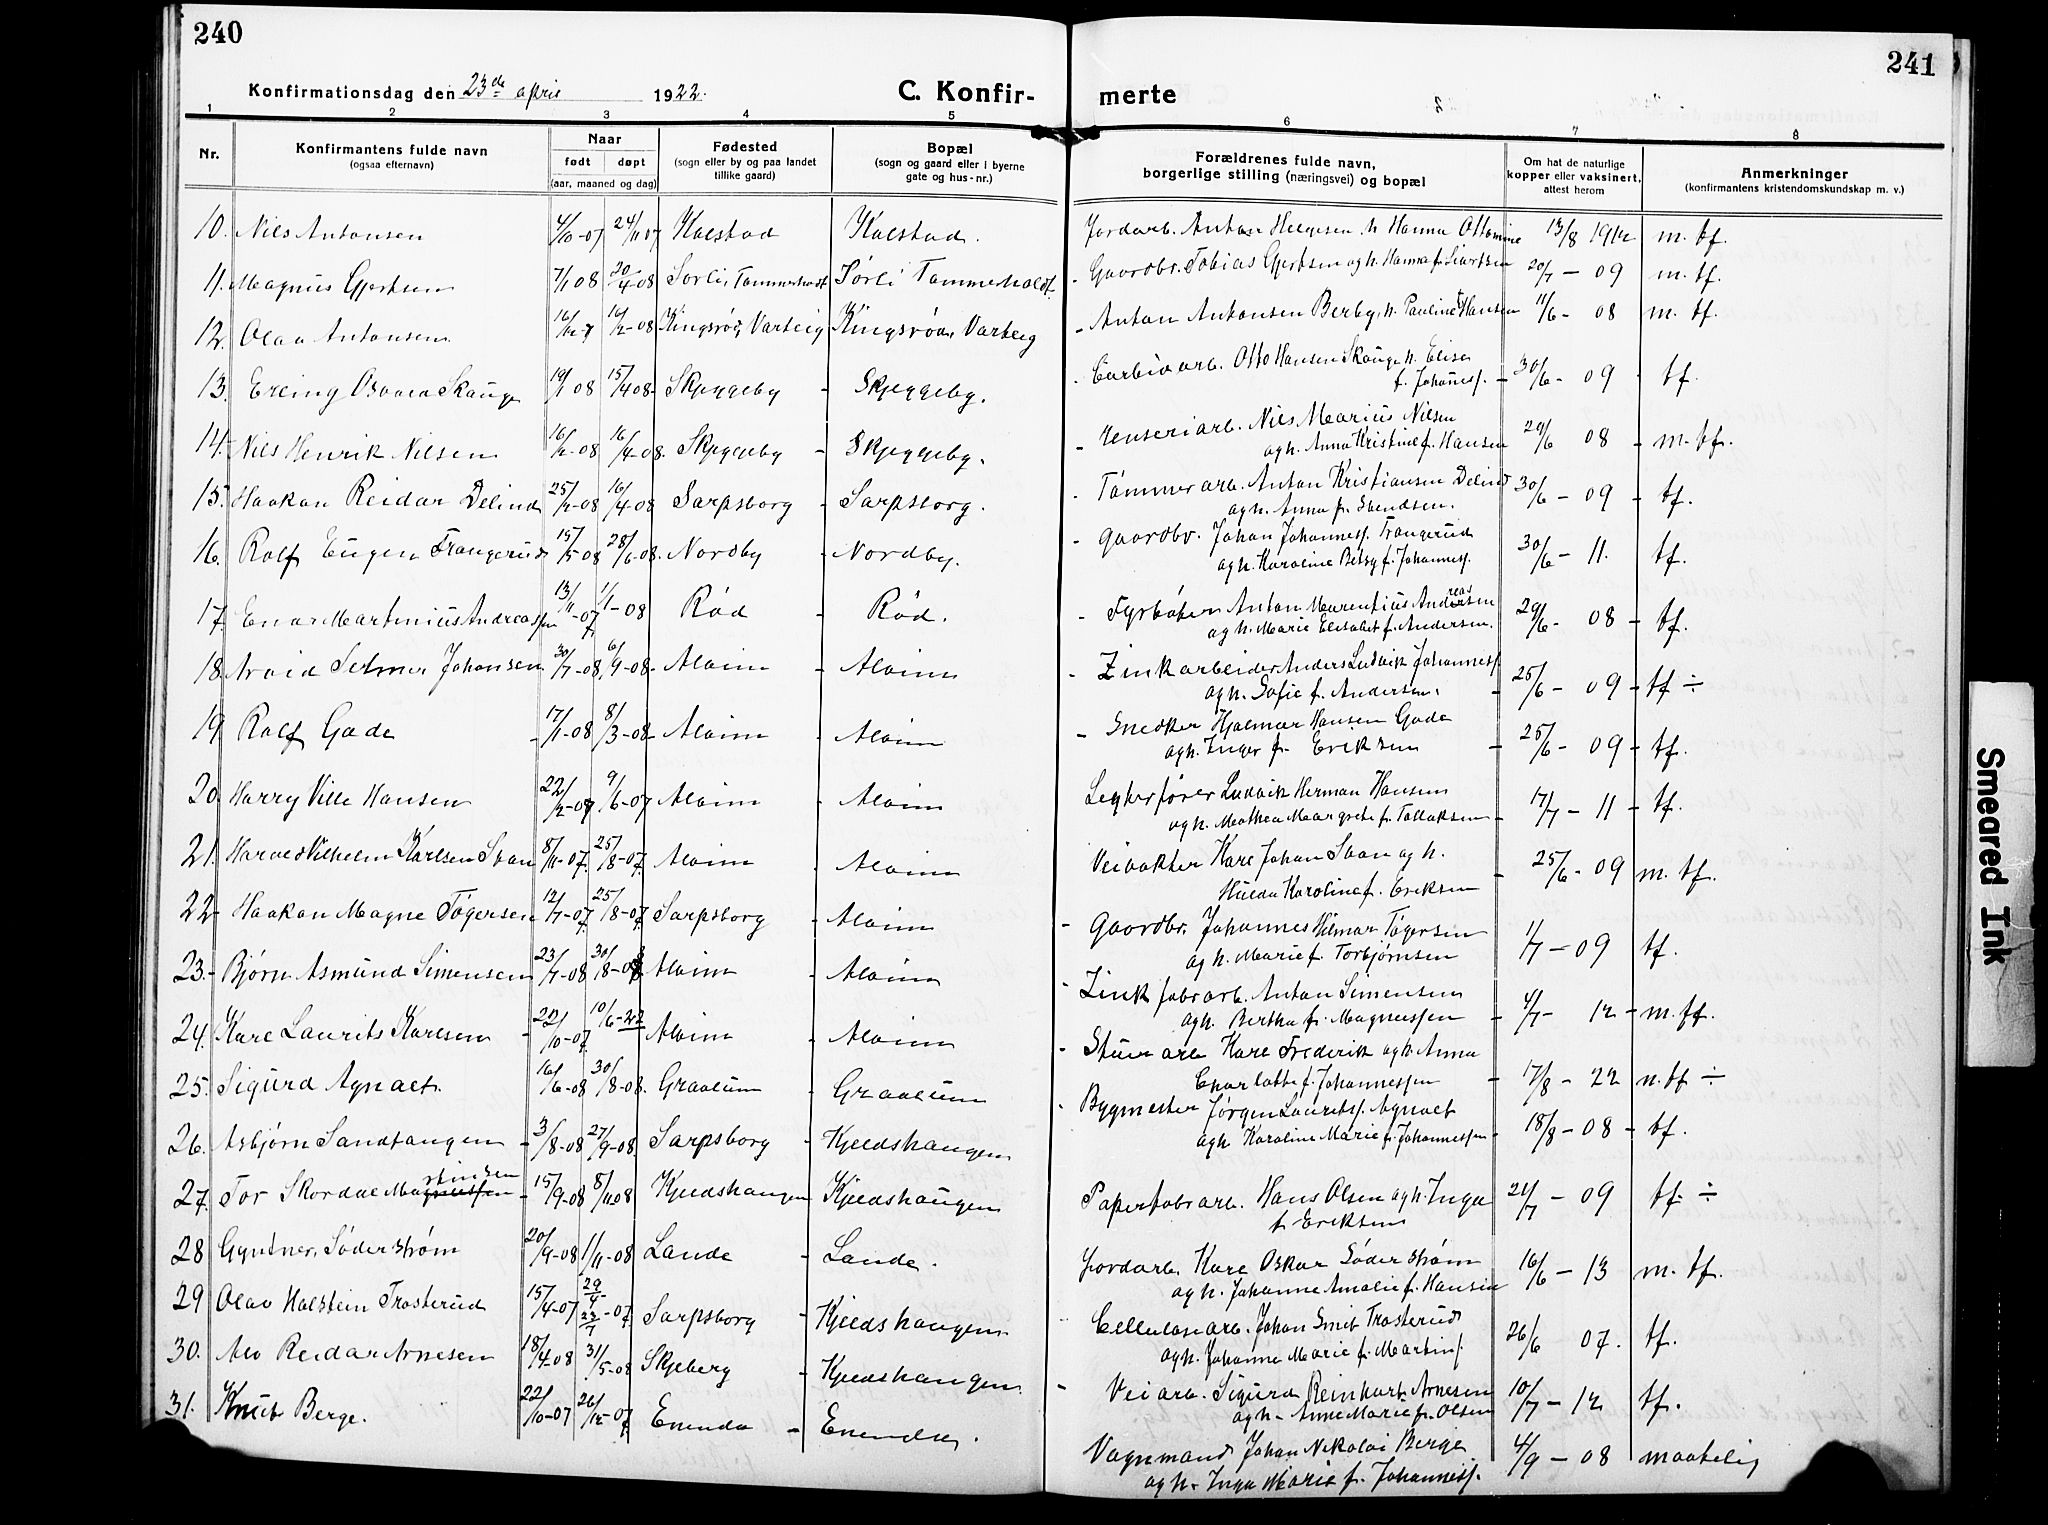 240
Konfirmationsdag den 23de april 1922.
C. Konfir-
1 2 3 4 5
Nr.
Konfirmantens fulde navn
(ogsaa efternavn)
Naar
født døpt
(aar, maaned og dag)
Fødested
(sogn eller by og paa landet
tillike gaard)
Bopæl
(sogn og gaard eller i byerne
gate og hus-nr.)
10. Nils Antonsen 4/10-07 24/11 07 Kalstad Kalstad.
11. Magnus Gjertsen 7/1 08 20/4-08 Sørli, Tammerholt Sørli Tammerholdt
12. Olav Antonsen 16/12-7 16/2-08 Kingsrød, Varteig Kingsrød, Varteig
13. Erling Osvald Skauge 19/1 08 15/4 08- Skjeggeby - Skjeggeby.
14. Nils Henrik Nilsen 16/2-08 16/4-08. Skjeggeby - Skjeggeby.
15. Haakon Reidar Delind 25/2-08 16/4-08 Sarpsborg - Sarpsborg.
16. Rolf Eugen Trangerud 15/5 08 28/6-08. Nordby - Nordby.
17. Einar Martinius Andreassen 13/11-07 1/1-08 Rød - Rød.
18. Arvid Selmer Johansen 30/7-08 6/9-08. Alvim - Alvim
19 Rolf Gade - 17/1-08 8/3-08- Alvim - Alvim
20. Harry Ville Hansen 22/2-07 9/6-07 Alvim - Alvim
21. Harald Vilhelm Karlsen Svan 8/11-07. 25/8-07. Alvim - Alvim
22- Haakon Magne Tøgersen 12/7-07 25/8-07 Sarpsborg - Alvim
23.- Bjørn Asmund Simensen 23/7-08 30/8-08 Alvim - Alvim
24. Karl Laurits Karlsen - 22/10-07 10/6-22 Alvim - Alvim
25. Sigurd Agnalt. 16/6-08 30/8-08. Graalum - Graalum
26. Asbjørn Sandtangen - 3/8-08 27/9-08. Sarpsborg - Kjeldshaugen
27. Tor Skordal Martinsen - 15/9-08 8/11 08 Kjeldshaugen Kjeldshaugen
28 Gyntner, Søderstrøm 20/9-08 1/11-08 Lande - Lande.
29 Olav Halstein Trosterud 15/4-07 29/4 23/7-07. Sarpsborg - Kjeldshaugen
30. Alv Reidar Arnesen 18/4-08 31/5-08 Skjeberg - Kjeldshaugen.
31. Knut Berge. 22/10-07 26/12-07 Enenda - Enenda.
241
merte
6 7 8
Forældrenes fulde navn,
borgerlige stilling (næringsvei) og bopæl
Om hat de naturlige
kopper eller vaksinert,
attest herom
Anmerkninger
(konfirmantens kristendomskundskap m. v.)
Jordarb. Anton Helgesen h Hanna Ottomine 13/8 1912 m. tf.
- Gaardbr. Tobias Gjertsen og h. Hanna f. 20/7 - 09 m. tf.
- Anton Antonsen Berby, h. Pauline f. Hansen 11/6 - 08 m. tf.
- Carbidarb. Otto Hansen Skauge h. Elise
f. Johaness. - 30/6 - 09 - tf.
- Renseriarb. Nils Marius Nilsen
og h. Anna Kristine f. Hansen 29/6 08 - m. tf.
- Tømmerarb. Anton Kristiansen Delind
og h. Anna f. Svendsen. 30/6 - 09 - tf.
- Gaardbr. Johan Johanness. Trangerud
og h. Karoline Betsy f. Johanness. 30/6 - 11. tf.
- Fyrbøter Anton Marentius Andersen
reas
og h. Marie Elisabet f. Andersen. 29/6 - 08 - tf.
- Zinkarbeider Anders Ludvik Johanness.
og h. Sofie f. Andersen. - 25/6 - 09 - tf ÷
- Snedker Hjalmar Hansen Gade
og h. Inger f. Eriksen - 25/6 - 09 - tf.
Legterfører Ludvik Herman Hansen
og h. Mathea Margrete f. Tollaksen - 17/7 - 11 - tf.
Veivokter Karl Johan Svan og h.
Hulda Karoline f. Eriksen - 25/6 - 09 m. tf.
- Gaardbr. Johannes Hilmar Tøgersen
og h. Marie f. Torbjørnsen 1/7 - 09 tf.
- Zink fabr arb. Anton Simensen
og h. Bertha f. Magnussen - 4/7 - 12 - m. tf.
- Stuerarb Karl Frederik og h. Anna
Charlotte f. Johannessen - 17/8 - 22 n. tf ÷
- Bygmester Jørgen Lauritss. Agnalt
og h Karoline Marie f. Johannessen - 18/8 - 08 - tf.
Papirfabrarb. Hans Olsen og h. Inga
f. Eriksen 21/7 - 09 tf. ÷
Jordarb. Karl Oskar Søderstrøm
og h. Johanne Amalie f. Hansen 16/6 - 13 m. tf.
Cellulosearb. Johan Smit Trosterud
og h. Johanne Marie f. Martins. 26/6 07. tf.
- Veiarb. Sigurd Reinhart Arnesen
og h - Anne Marie f. Olsen 10/7 - 12 tf.
Vognmand Johan Nikolai Berge
og h. Inga Marie f. Johanness. 4/9 - 08 maatelig
Smeared Ink